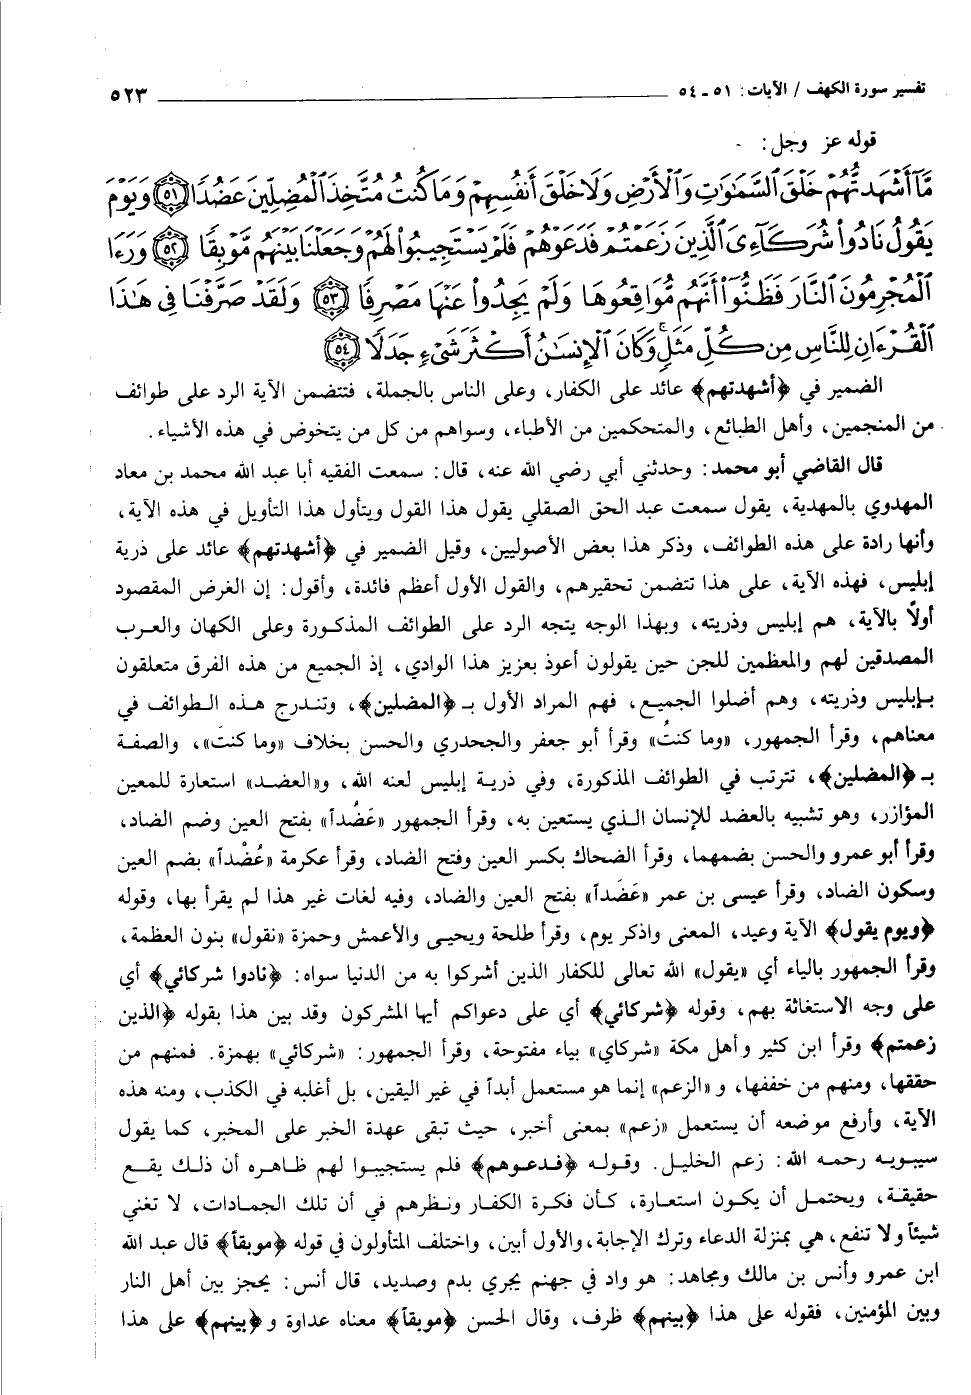 تفسير سورة الكهف / الآيات: ٥١ - ٥٤ ٥٢٣
قوله عز وجل:
مَّآ أَشْهَدتُّهُمْ خَلْقَ ٱلسَّمَٰوَٰتِ وَٱلْأَرْضِ وَلَا خَلْقَ أَنفُسِهِمْ وَمَا كُنتُ مُتَّخِذَ ٱلْمُضِلِّينَ عَضُدًا ﴿٥١﴾ وَيَوْمَ
يَقُولُ نَادُوا۟ شُرَكَآءِىَ ٱلَّذِينَ زَعَمْتُمْ فَدَعَوْهُمْ فَلَمْ يَسْتَجِيبُوا۟ لَهُمْ وَجَعَلْنَا بَيْنَهُم مَّوْبِقًا ﴿٥٢﴾ وَرَءَا
ٱلْمُجْرِمُونَ ٱلنَّارَ فَظَنُّوٓا۟ أَنَّهُم مُّوَاقِعُوهَا وَلَمْ يَجِدُوا۟ عَنْهَا مَصْرِفًا ﴿٥٣﴾ وَلَقَدْ صَرَّفْنَا فِى هَٰذَا
ٱلْقُرْءَانِ لِلنَّاسِ مِن كُلِّ مَثَلٍ وَكَانَ ٱلْإِنسَٰنُ أَكْثَرَ شَىْءٍ جَدَلًا ﴿٥٤﴾
الضمير في ﴿أشهدتهم﴾ عائد على الكفار، وعلى الناس بالجملة، فتتضمن الآية الرد على طوائف
من المنجمين، وأهل الطبائع، والمتحكمين من الأطباء، وسواهم من كل من يتخوض في هذه الأشياء.
قال القاضي أبو محمد: وحدثني أبي رضي الله عنه، قال: سمعت الفقيه أبا عبد الله محمد بن معاد
المهدوي بالمهدية، يقول سمعت عبد الحق الصقلي يقول هذا القول ويتأول هذا التأويل في هذه الآية،
وأنها رادة على هذه الطوائف، وذكر هذا بعض الأصوليين، وقيل الضمير في ﴿أشهدتهم﴾ عائد على ذرية
إبليس، فهذه الآية، على هذا تتضمن تحقيرهم، والقول الأول أعظم فائدة، وأقول: إن الغرض المقصود
أولاً بالآية، هم إبليس وذريته، وبهذا الوجه يتجه الرد على الطوائف المذكورة وعلى الكهان والعرب
المصدقين لهم والمعظمين للجن حين يقولون أعوذ بعزيز هذا الوادي، إذ الجميع من هذه الفرق متعلقون
بإبليس وذريته، وهم أضلوا الجميع، فهم المراد الأول بـ ﴿المضلين﴾، وتندرج هذه الطوائف في
معناهم، وقرأ الجمهور، «وما كنتُ» وقرأ أبو جعفر والجحدري والحسن بخلاف «وما كنتَ»، والصفة
بـ ﴿المضلين﴾، تترتب في الطوائف المذكورة، وفي ذرية إبليس لعنه الله، و«العضد» استعارة للمعين
المؤازر، وهو تشبيه بالعضد للإنسان الذي يستعين به، وقرأ الجمهور «عَضُداً» بفتح العين وضم الضاد،
وقرأ أبو عمرو والحسن بضمهما، وقرأ الضحاك بكسر العين وفتح الضاد، وقرأ عكرمة «عُضْداً» بضم العين
وسكون الضاد، وقرأ عيسى بن عمر «عَضَداً» بفتح العين والضاد، وفيه لغات غير هذا لم يقرأ بها، وقوله
﴿ويوم يقول﴾ الآية وعيد، المعنى واذكر يوم، وقرأ طلحة ويحيى والأعمش وحمزة «نقول» بنون العظمة،
وقرأ الجمهور بالياء أي «يقول» الله تعالى للكفار الذين أشركوا به من الدنيا سواه: ﴿نادوا شركائي﴾ أي
على وجه الاستغاثة بهم، وقوله ﴿شركائي﴾ أي على دعواكم أيها المشركون وقد بين هذا بقوله ﴿الذين
زعمتم﴾ وقرأ ابن كثير وأهل مكة «شركاي» بياء مفتوحة، وقرأ الجمهور: «شركائي» بهمزة. فمنهم من
حققها، ومنهم من خففها، و «الزعم» إنما هو مستعمل أبداً في غير اليقين، بل أغلبه في الكذب، ومنه هذه
الآية، وأرفع موضعه أن يستعمل «زعم» بمعنى أخبر، حيث تبقى عهدة الخبر على المخبر، كما يقول
سيبويه رحمه الله: زعم الخليل. وقوله ﴿فدعوهم﴾ فلم يستجيبوا لهم ظاهره أن ذلك يقع
حقيقة، ويحتمل أن يكون استعارة، كأن فكرة الكفار ونظرهم في أن تلك الجمادات، لا تغني
شيئاً ولا تنفع، هي بمنزلة الدعاء وترك الإجابة، والأول أبين، واختلف المتأولون في قوله ﴿موبقاً﴾ قال عبد الله
ابن عمرو وأنس بن مالك ومجاهد: هو واد في جهنم يجري بدم وصديد، قال أنس: يحجز بين أهل النار
وبين المؤمنين، فقوله على هذا ﴿بينهم﴾ ظرف، وقال الحسن ﴿موبقاً﴾ معناه عداوة و﴿بينهم﴾ على هذا